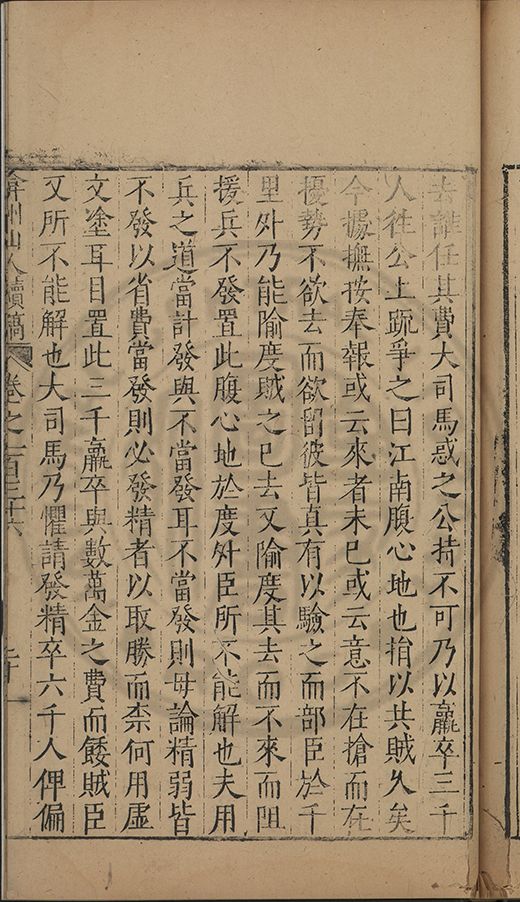 去誰任其費大司馬惑之公持不可乃以羸卒三千
人徃公上疏爭之曰江南腹心地也捐以共賊久矣
今據撫按奉報或云來者未已或云意不在搶而在
擾勢不欲去而欲留彼皆真有以驗之而部臣於千
里外乃能隃度賊之已去又隃度其去而不來而阻
援兵不發置此腹心地於度外臣所不能解也夫用
兵之道當計發與不當發耳不當發則毋論精弱皆
不發以省費當發則必發精者以取勝而柰何用虛
文塗耳目置此三千羸卒與數萬金之費而餧賊臣
又所不能解也大司馬乃懼請發精卒六千人俾偏
弇州山人續稿 卷之一百三十六